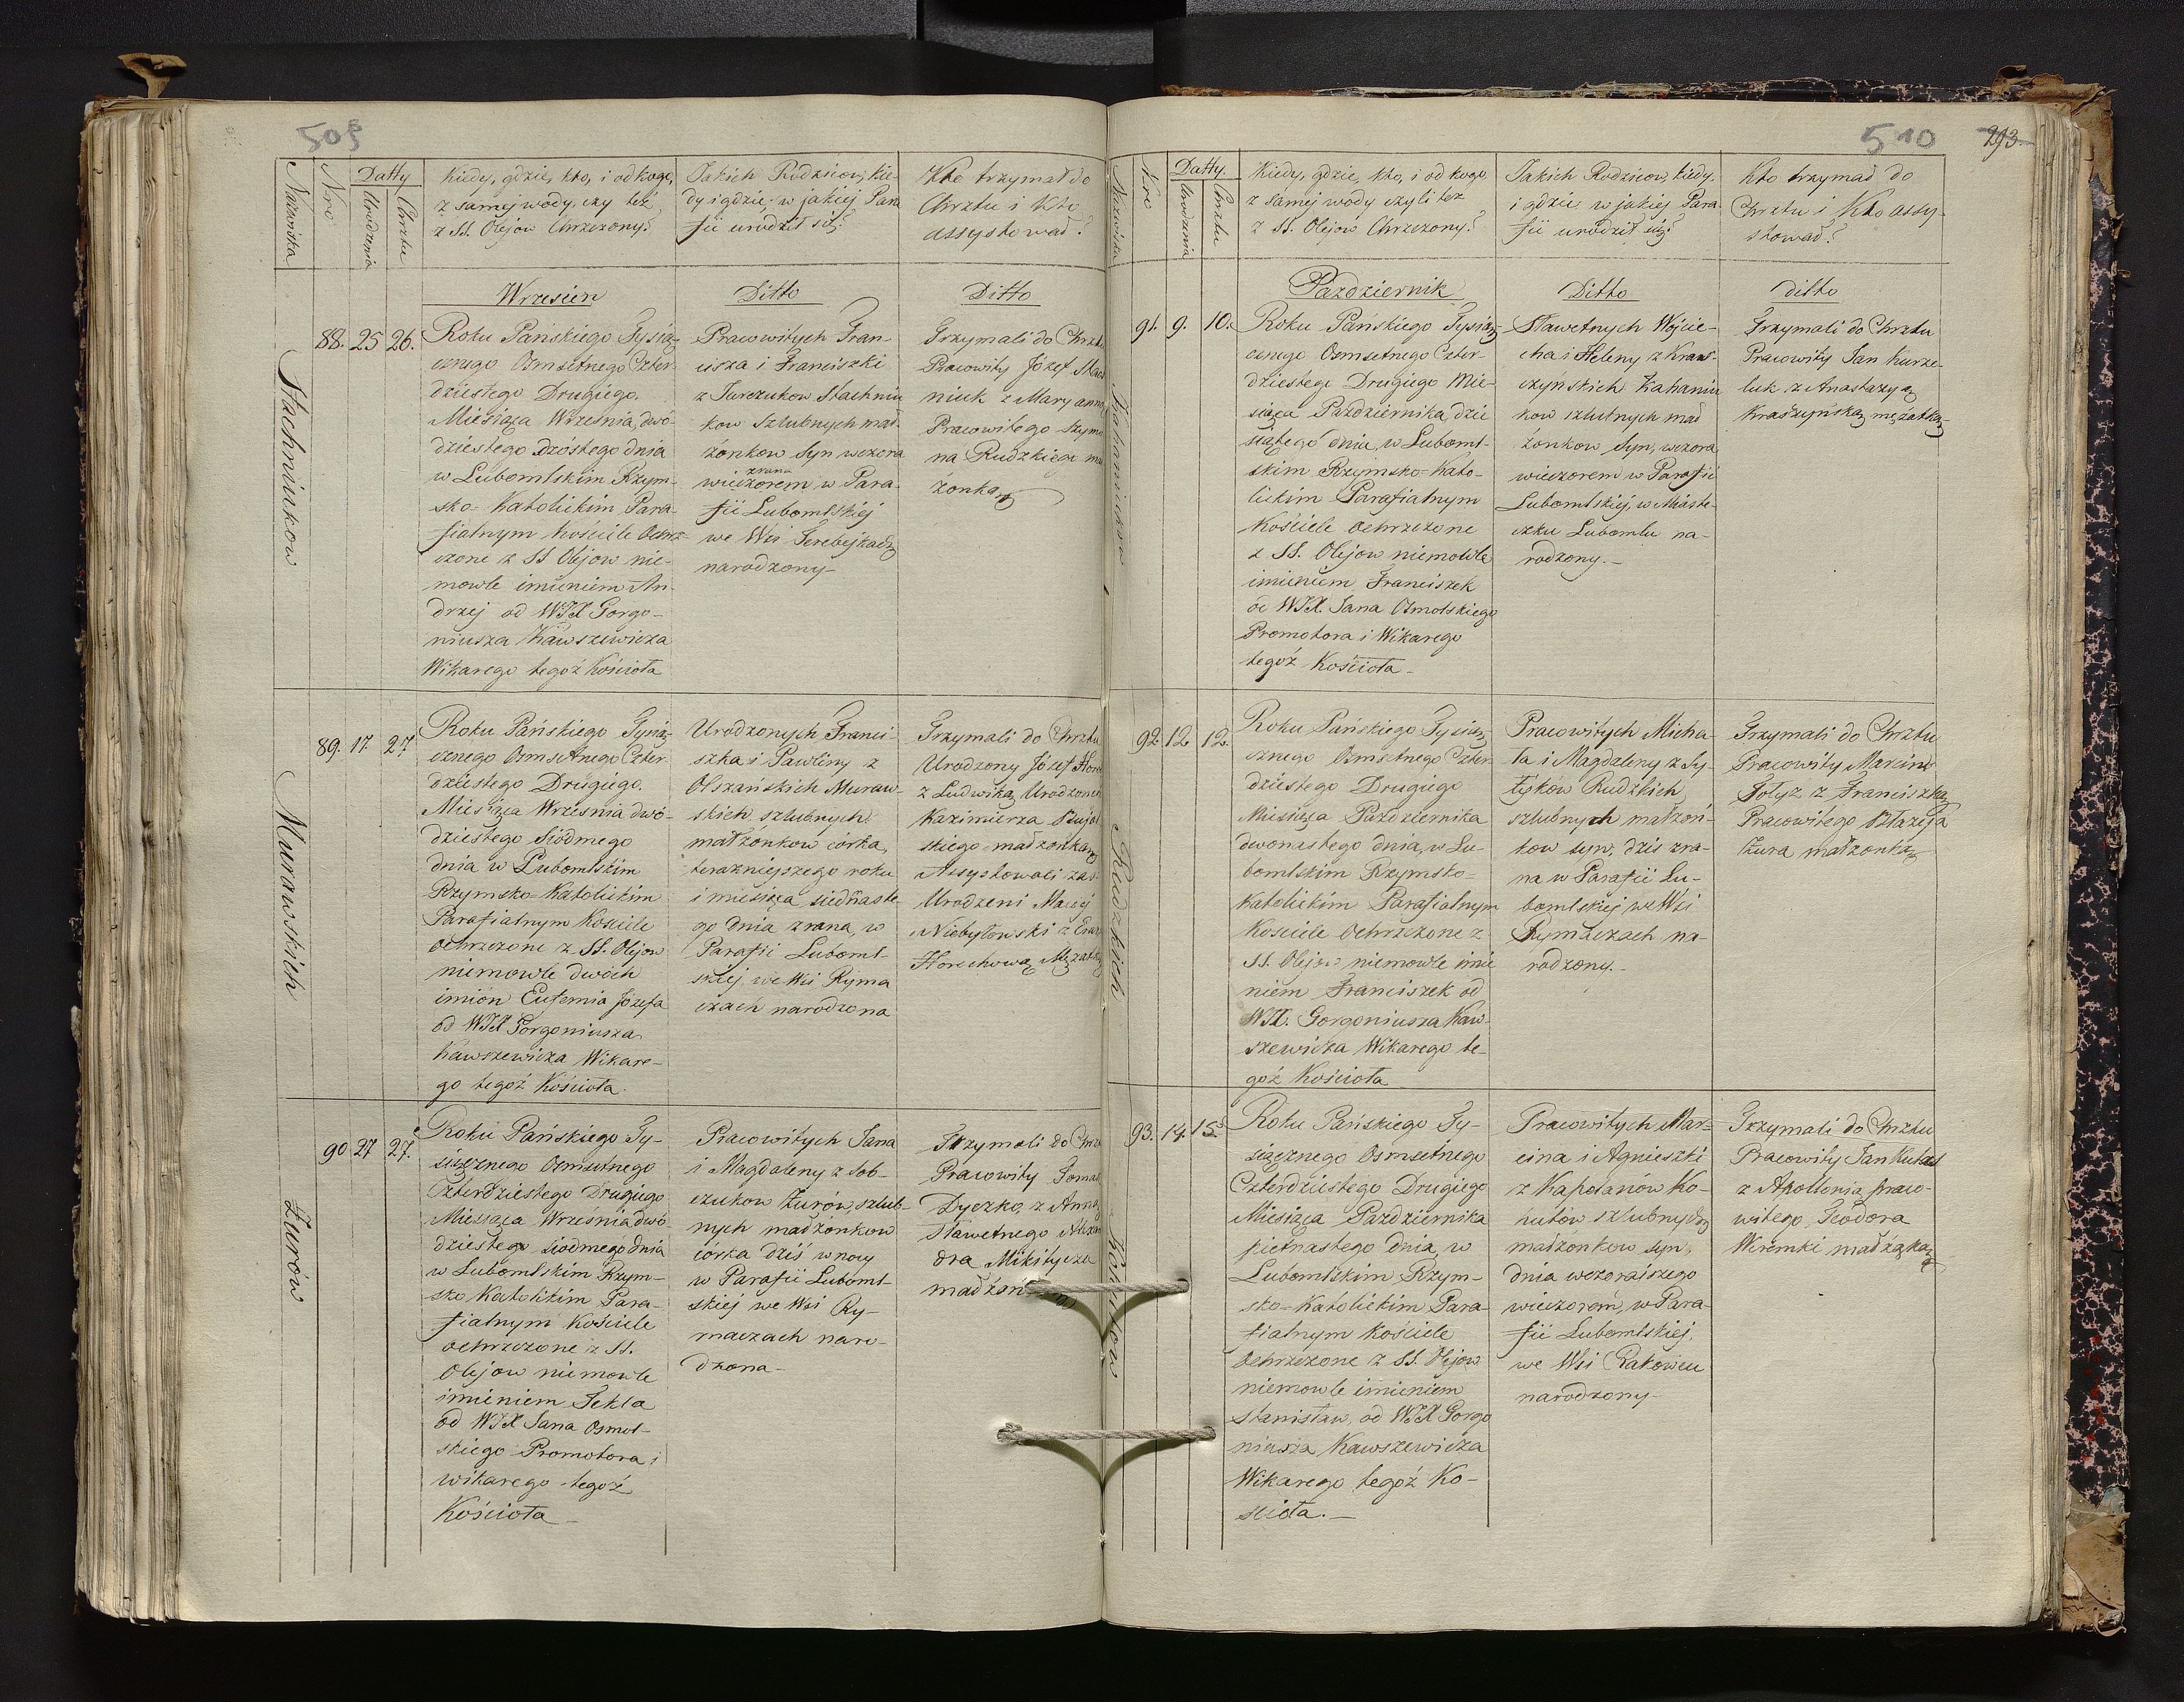 509
Nazwiska
Nro
Datty
Urodzenia
Chrztu
Kiedy, gdzie, kto, i od kogo,
z samej wody, czy też
z SS. Olejow Chrzczony?
Jakich Rodziców, kie-
dy i gdzie, w jakiej Para
fii urodził się?
Kto trzymał do
Chrztu i Kto
assystował?
Wrzesien
Ditto
Ditto
Stachniukow
88. 25 26.
Roku Pańskiego Tysią-
cznego Osmsetnego Czter-
dziestego Drugiego.
Miesiąca Wrzesnia, dwó-
dziestego szóstego dnia
w Lubomlskim Rzym-
sko-Katolickim Para-
fialnym Kościele Ochrz-
czone z SS Olejow nie-
mowle imieniem An-
drzej od WJX Gorgo-
niusza Kawszewicza
Wikarego tegoż Kościoła
Pracowitych Fran-
ciszka i Franciszki
z Jurczukow Stachniu
kow Szlubnych mał-
żonkow Syn wczora
zrana
wieczorem w Para-
fii Lubomlskiej
we Wsi Terebejkach
narodzony-
Trzymali do Chrztu
Pracowity Józef Stach
niuk z Maryanną
Pracowitego Szymo
na Rudzkiego mał
żonką
Murawskich
89. 17. 27
Roku Pańskiego Tysią-
cznego Osmsetnego Czter-
dziestego Drugiego.
Miesiąca Wrzesnia dwó-
dziestego Siódmego
dnia w Lubomlskim
Rzymsko-Katolickim
Parafialnym Kościele
ochrzczone z SS. Olejow
niemowle dwóch
imion Eufemia Józefa
od WJX Gorgoniusza
Kawszewicza Wikare-
go tegoż Kościoła.
Urodzonych Franci-
szka i Pawliny z
Olszańskich Muraw-
skich szlubnych
małżonkow córka,
teraźniejszego roku
i miesiąca siednaste-
go dnia zrana, w
Parafii Luboml-
skiej, we Wsi Ryma
czach narodzona
Trzymali do Chrztu
Urodzony Józef
z Ludwiką Urodzonego
Kazimierza
skiego małżonką
Assystowali zaś
Urodzeni Maciej
Niebytowski z
Horochową Mężatką
Zurów
90 27 27.
Roku Pańskiego Ty-
siącznego Osmsetnego
Czterdziestego Drugiego
Miesiąca Września dwó-
dziestego siodmego dnia
w Lubomlskim Rzym-
sko Katolickim Para-
fialnym Kościele
ochrzczone z SS.
Olejow niemowle
imieniem Tekla
od WJX Jana Osmol-
skiego Promotora i
wikarego tegoż
Kościoła-
Pracowitych Jana
i Magdaleny z Sob-
czukow Żurów, szlub-
nych małżonkow
córka dziś w nocy
w Parafii Luboml-
skiej we Wsi Ry-
maczach naro-
dzona-
Trzymali do Chrz
Pracowity Tomasz
Dyczko, z Anną
Sławetnego Alexan
dra Mikitycza
małżonką
510
293
Nazwiska
Nro
Datty.
Urodzenia
Chrztu
Kiedy, gdzie, kto, i od kogo
z samej wody czyli tez
z SS. Olejow Chrzczony?
Jakich Rodzicow, kiedy.
i gdzie w jakiej Para-
fii urodził się?
Kto trzymał do
Chrztu i Kto assy-
stował?
Pazdziernik
Ditto
ditto
91. 9. 10.
Roku Pańskiego Tysią-
cznego Osmsetnego Czter-
dziestego Drugiego Mie-
siąca Pazdziernika, dzie
siątego dnia, w Luboml-
skim Rzymsko-Kato-
lickim Parafialnym
Kościele ochrzczone
z SS. Olejow niemowle
imieniem Franciszek
od WJX. Jana Osmolskiego
Promotora i Wikarego
tegoż Kościoła-
Sławetnych Wojcie-
cha i Heleny z Kras-
czyńskich Kahaniu
kow szlubnych mał
żonkow Syn, wczora
wieczorem w Parafii
Lubomlskiej, w Miaste-
czku Lubomlu na-
rodzony.-
Trzymali do Chrztu
Pracowity Jan Kurze-
luk z Anastazyą
Kraszyńską mężatką
Rudzkich
92 12 12.
Roku Pańskiego Tysią-
cznego Osmsetnego Czter-
dziestego Drugiego
Miesiąca Pazdziernika
dwónastego dnia, w Lu-
bomlskim Rzymsko-
Katolickim Parafialnym
Kościele Ochrzczone z
SS. Olejow niemowle imie
niem Franciszek od
WJX. Gorgoniusza Kaw-
szewicza Wikarego te-
goż Kościoła
Pracowitych Micha-
ła i Magdaleny z Sy-
tyków Rudzkich
szlubnych małżon-
kow syn, dziś zra-
na w Parafii Lu-
bomlskiej we Wsi
Rymaczach na-
rodzony.-
Trzymali do Chrztu
Pracowity Marcin
Tołyz z Franciszką
Pracowitego Błażeja
Żura małżonką
Kohutow
93. 14. 15.
Roku Pańskiego Ty-
siącznego Osmsetnego
Czterdziestego Drugiego
Miesiąca Pazdziernika
pietnastego dnia, w
Lubomlskim Rzym-
sko-Katolickim Para-
fialnym kościele
Ochrzczone z SS. Olejow
niemowle imieniem
Stanisław, od WJX Gorgo
niusza Kawszewicza
Wikarego tegoż Ko-
scioła.-
Pracowitych Mar-
cina i Agnieszki
z Kapłanów Ko-
hutów szlubnych
małżonkow syn,
dnia wczoraiszego
wieczorem, w Para-
fii Lubomlskiej.
we Wsi Rakowcu
narodzony-
Trzymali do Chrztu
Pracowity Jan
z Apollonią praco-
witego Teodora
Weremki małżąką